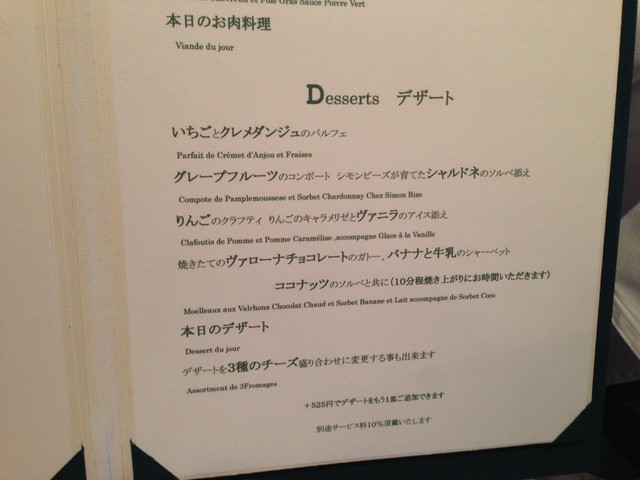 et Foie Gras Sauce Poivre Vert
本日のお肉料理
Viande du jour
Desserts デザート
いちごとクレメダンジュのパルフェ
Parfait de Crémet d'Anjou et Fraises
グレープフルーツのコンポート シモンビーズが育てたシャルドネのソルベ添え
Compote de Pamplemoussese et Sorbet Chardonnay Chez Simon Bize
りんごのクラフティ りんごのキャラメリゼとヴァニラのアイス添え
Clafoutis de Pomme et Pomme Caramélise ,accompagne Glace à la Vanille
焼きたてのヴァローナチョコレートのガトー、バナナと牛乳のシャーベット
ココナッツのソルベと共に(10分程焼き上がりにお時間いただきます)
Moelleaux aux Valrhona Chocolat Chaud et Sorbet Banane et Lait accompagne de Sorbet Coco
本日のデザート
Dessert du jour
デザートを3種のチーズ盛り合わせに変更する事も出来ます
Assortment de 3Fromages
+525円でデザートをもう1皿ご追加できます
別途サービス料10%頂戴いたします